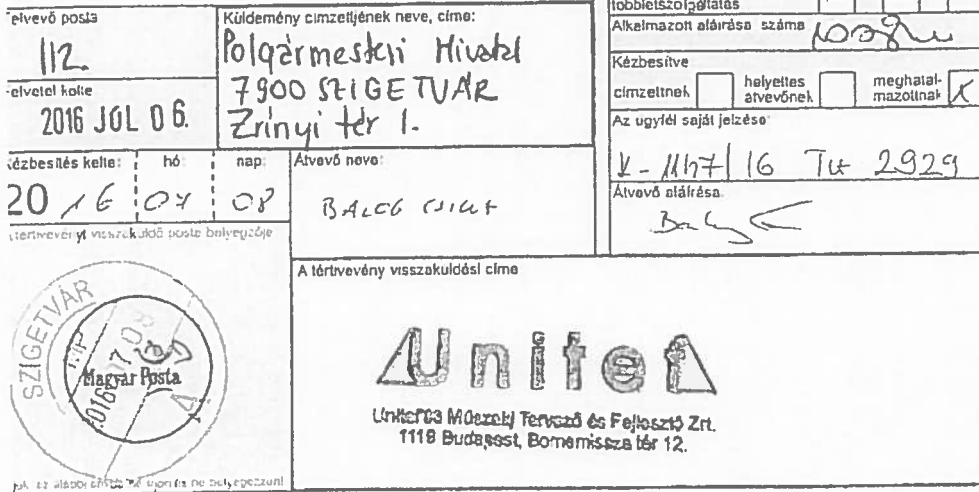 Felvevő posta
112.
Felvétel kelte
2016 JÚL 06.
Küldemény címzettjének neve, címe:
Polgármesteri Hivatal
7900 SZIGETVÁR
Zrínyi tér 1.
többletszolgáltatás
Alkalmazott aláírása száma
Kézbesítve
címzettnek
helyettes átvevőnek
meghatalmazottnak X
Az ugyfél saját jelzése:
/16 Tu 2929
Kézbesítés kelte: hó nap:
20 16 07 08
Átvevő neve:
Átvevő aláírása.
A tértivevényt visszaküldő posta bélyegzője
SZIGETVÁR
MP
Magyar Posta
A tértivevény visszaküldési címe
Unitef
Unitef'83 Műszaki Tervező és Fejlesztő Zrt.
1119 Budapest, Bornemissza tér 12.